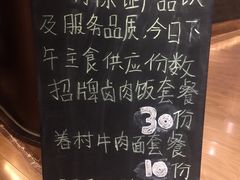 为保证产品以
及服务品质,今日下
午主食供应份数
招牌卤肉饭套餐
30份
眷村牛肉面套餐
10份